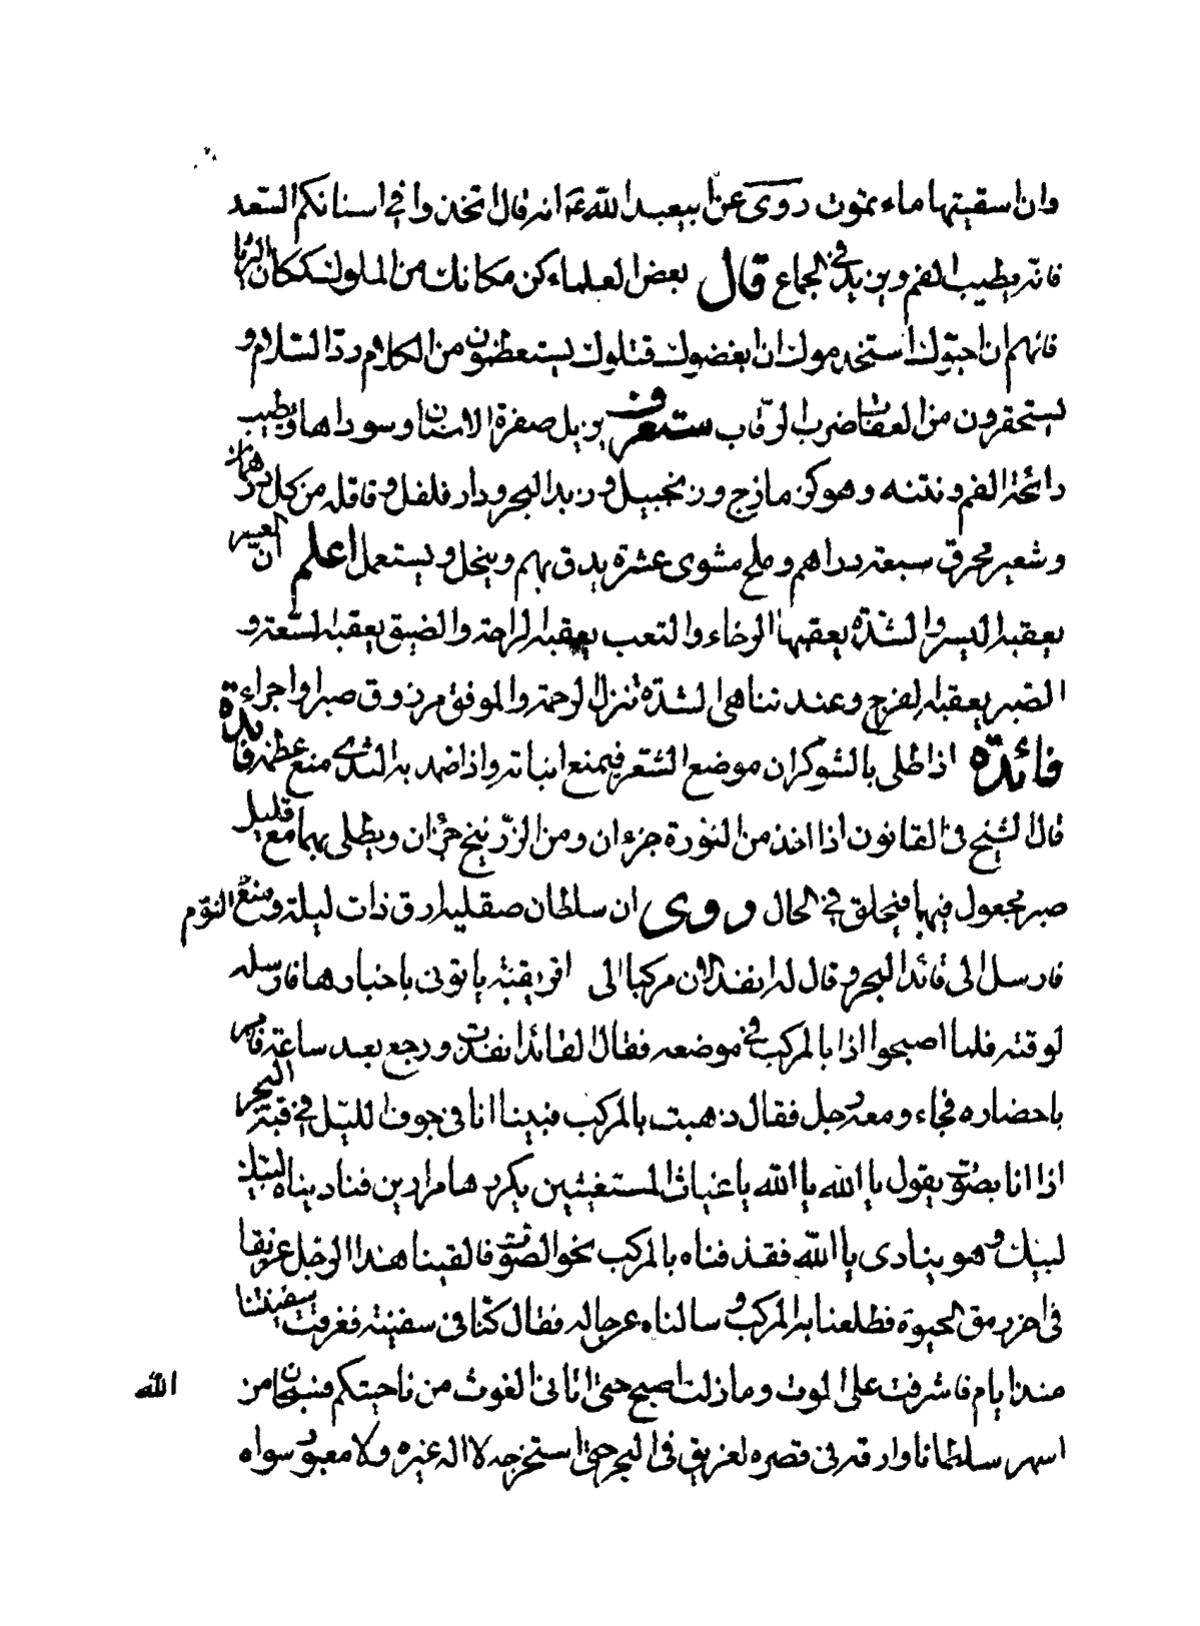 وان اسقيتها ماء تموت روى عن ابيعبد الله ع انه قال اتخذوا في اسنانكم السعد
فانه يطيب الفم ويزيد في الجماع قال بعض العلماء كن مكانك من الملوك كمكان
فانهم ان احبوك استخدموك ان ابغضوك قتلوك يستعظمون من الكلام رد السلام و
يستحقرون من العقاب ضرب الرقاب سنون يزيل صفرة الاسنان وسوداها ويطيب
رائحة الفم ونتنه وهو كزمازج وزنجبيل وزبد البحر ودار فلفل وقاقله من كل درهمان
وشعير محرق سبعة دراهم وملح مشوى عشرة يدق بهم وينخل ويستعمل اعلم ان العسر
يعقبه اليسر والشدة يعقبها الرخاء والتعب يعقبه الراحة والضيق يعقبه السعة و
الصبر يعقبه الفرج وعند تناهى الشدة تنزل الرحمة والموفق من رزق صبرا واجرا
فائدة اذا طلى بالشوكران موضع الشعر فيمنع انباته واذا ضمد به الثدى منع عظمه فايدة
قال الشيخ في القانون اذا اخذ من النورة جزءان ومن الزرنيخ جزءان ويطلى بهما مع قليل
صبر مجعول فيها فيحلق في الحال وروى ان سلطان صقليه ارق ذات ليلة ومنع النوم
فارسل الى قائد البحر وقال له انفذ الان مركبا الى افريقية ياتونى باخبارها فارسله
لوقته فلما اصبحوا اذا بالمركب في موضعه فقال القائد انفذت ورجع بعد ساعة فامر
باحضاره فجاء ومعه رجل فقال ذهبت بالمركب فبينا انا في جوف الليل في البحر
اذا انا بصوت يقول يا الله يا الله يا غياث المستغيثين يكررها مرارين فناديناه لبيك
لبيك وهو ينادى يا الله فقذفناه بالمركب نحو الصوت فالقينا هذا الرجل غريقا
في اخر رمق الحيوة فطلعنا به المركب وسالناه عن حاله فقال كنا في سفينة فغرقت سفينتنا
منذ ايام فاشرفت على الموت وما زلت اصبح حتى اتانى الغوث من ناحيتكم فسبحان من
الله
اسهر سلطانا وارقه في قصره لغريق في البحر حتى استخرجه لا اله غيره ولا معبود سواه